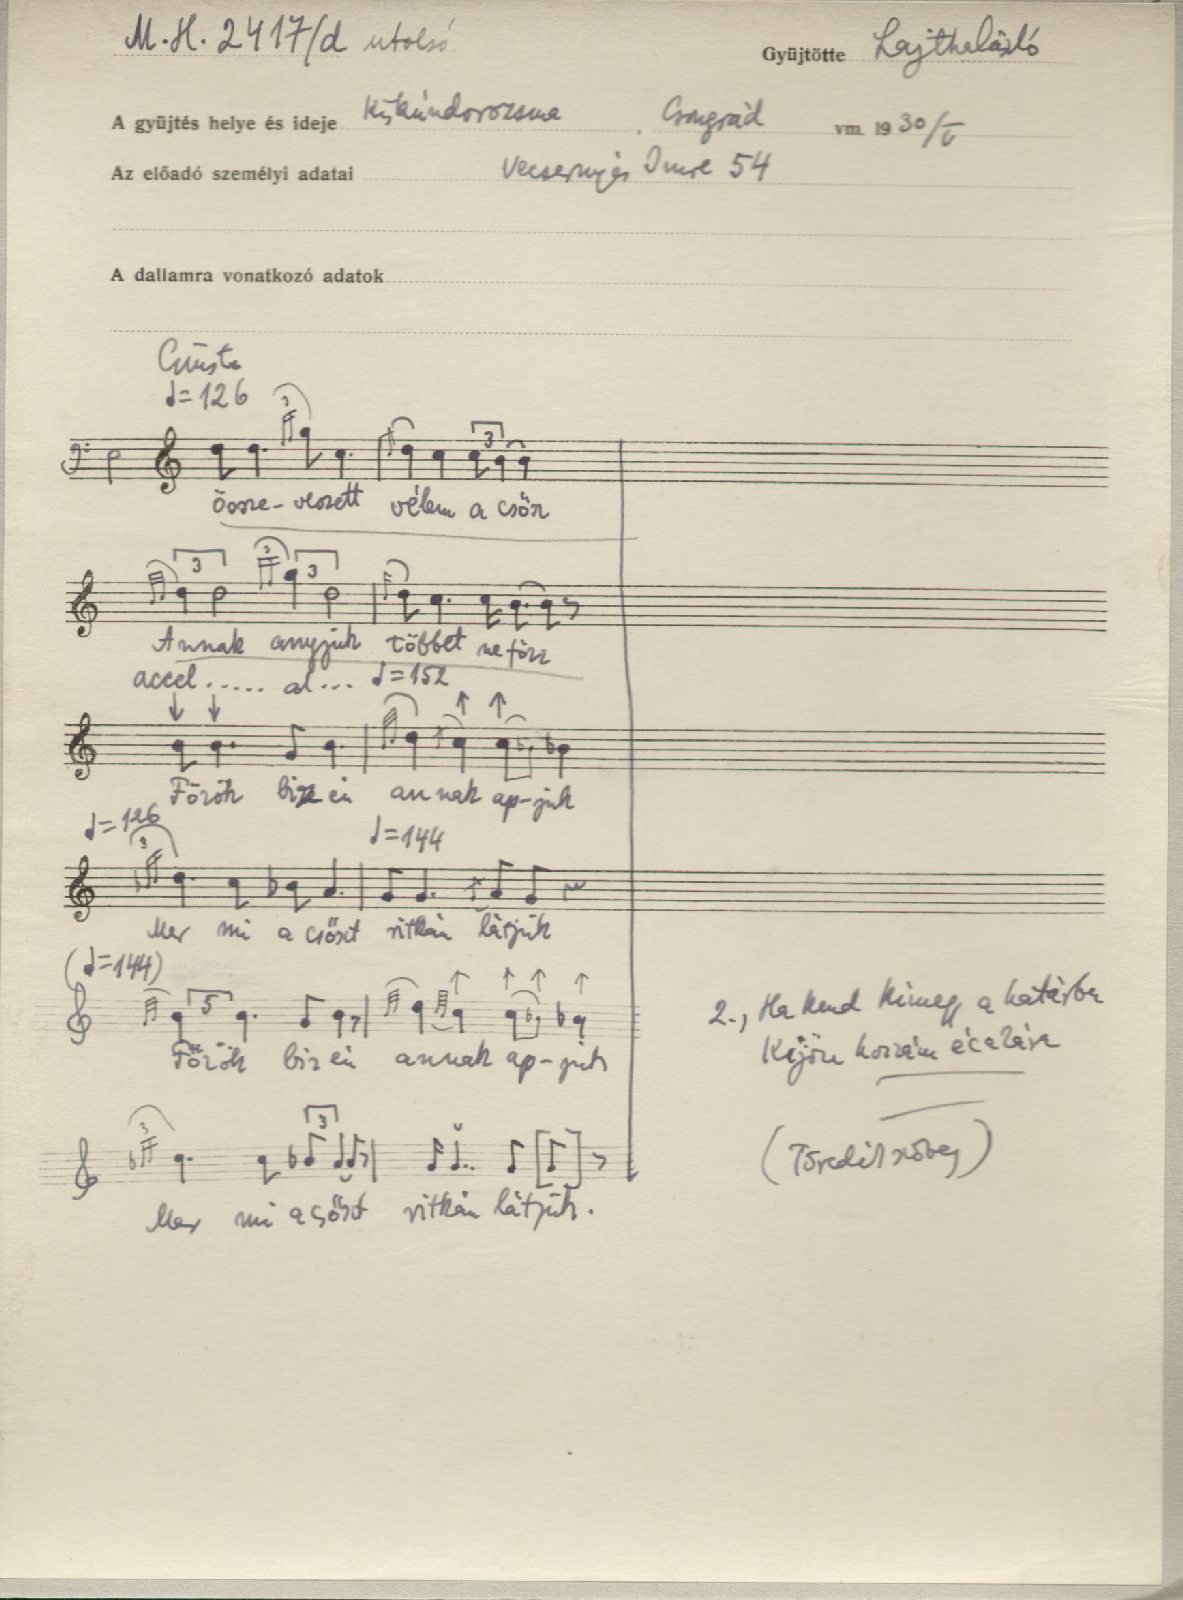 M.H. 2417/d utolsó
Gyüjtötte Lajtha László
A gyüjtés helye és ideje Kiskúndorozsma, Csongrád vm. 1930/V
Az előadó személyi adatai Vecsernyés Imre 54
A dallamra vonatkozó adatok
♩=126
össze-veszett vélem a csősz
Annak anyjuk többet ne főzz
accel..... al... ♩=152
Főzök biz én annak ap-juk
♩=126 ♩=144
Mer mi a csőszt ritkán látjuk
(♩=144)
Főzök biz én annak ap-juk
Mer mi a csőszt ritkán látjuk.
2., Ha kend kimegy a határba
Kijön hozzám
(Töredék szöveg)